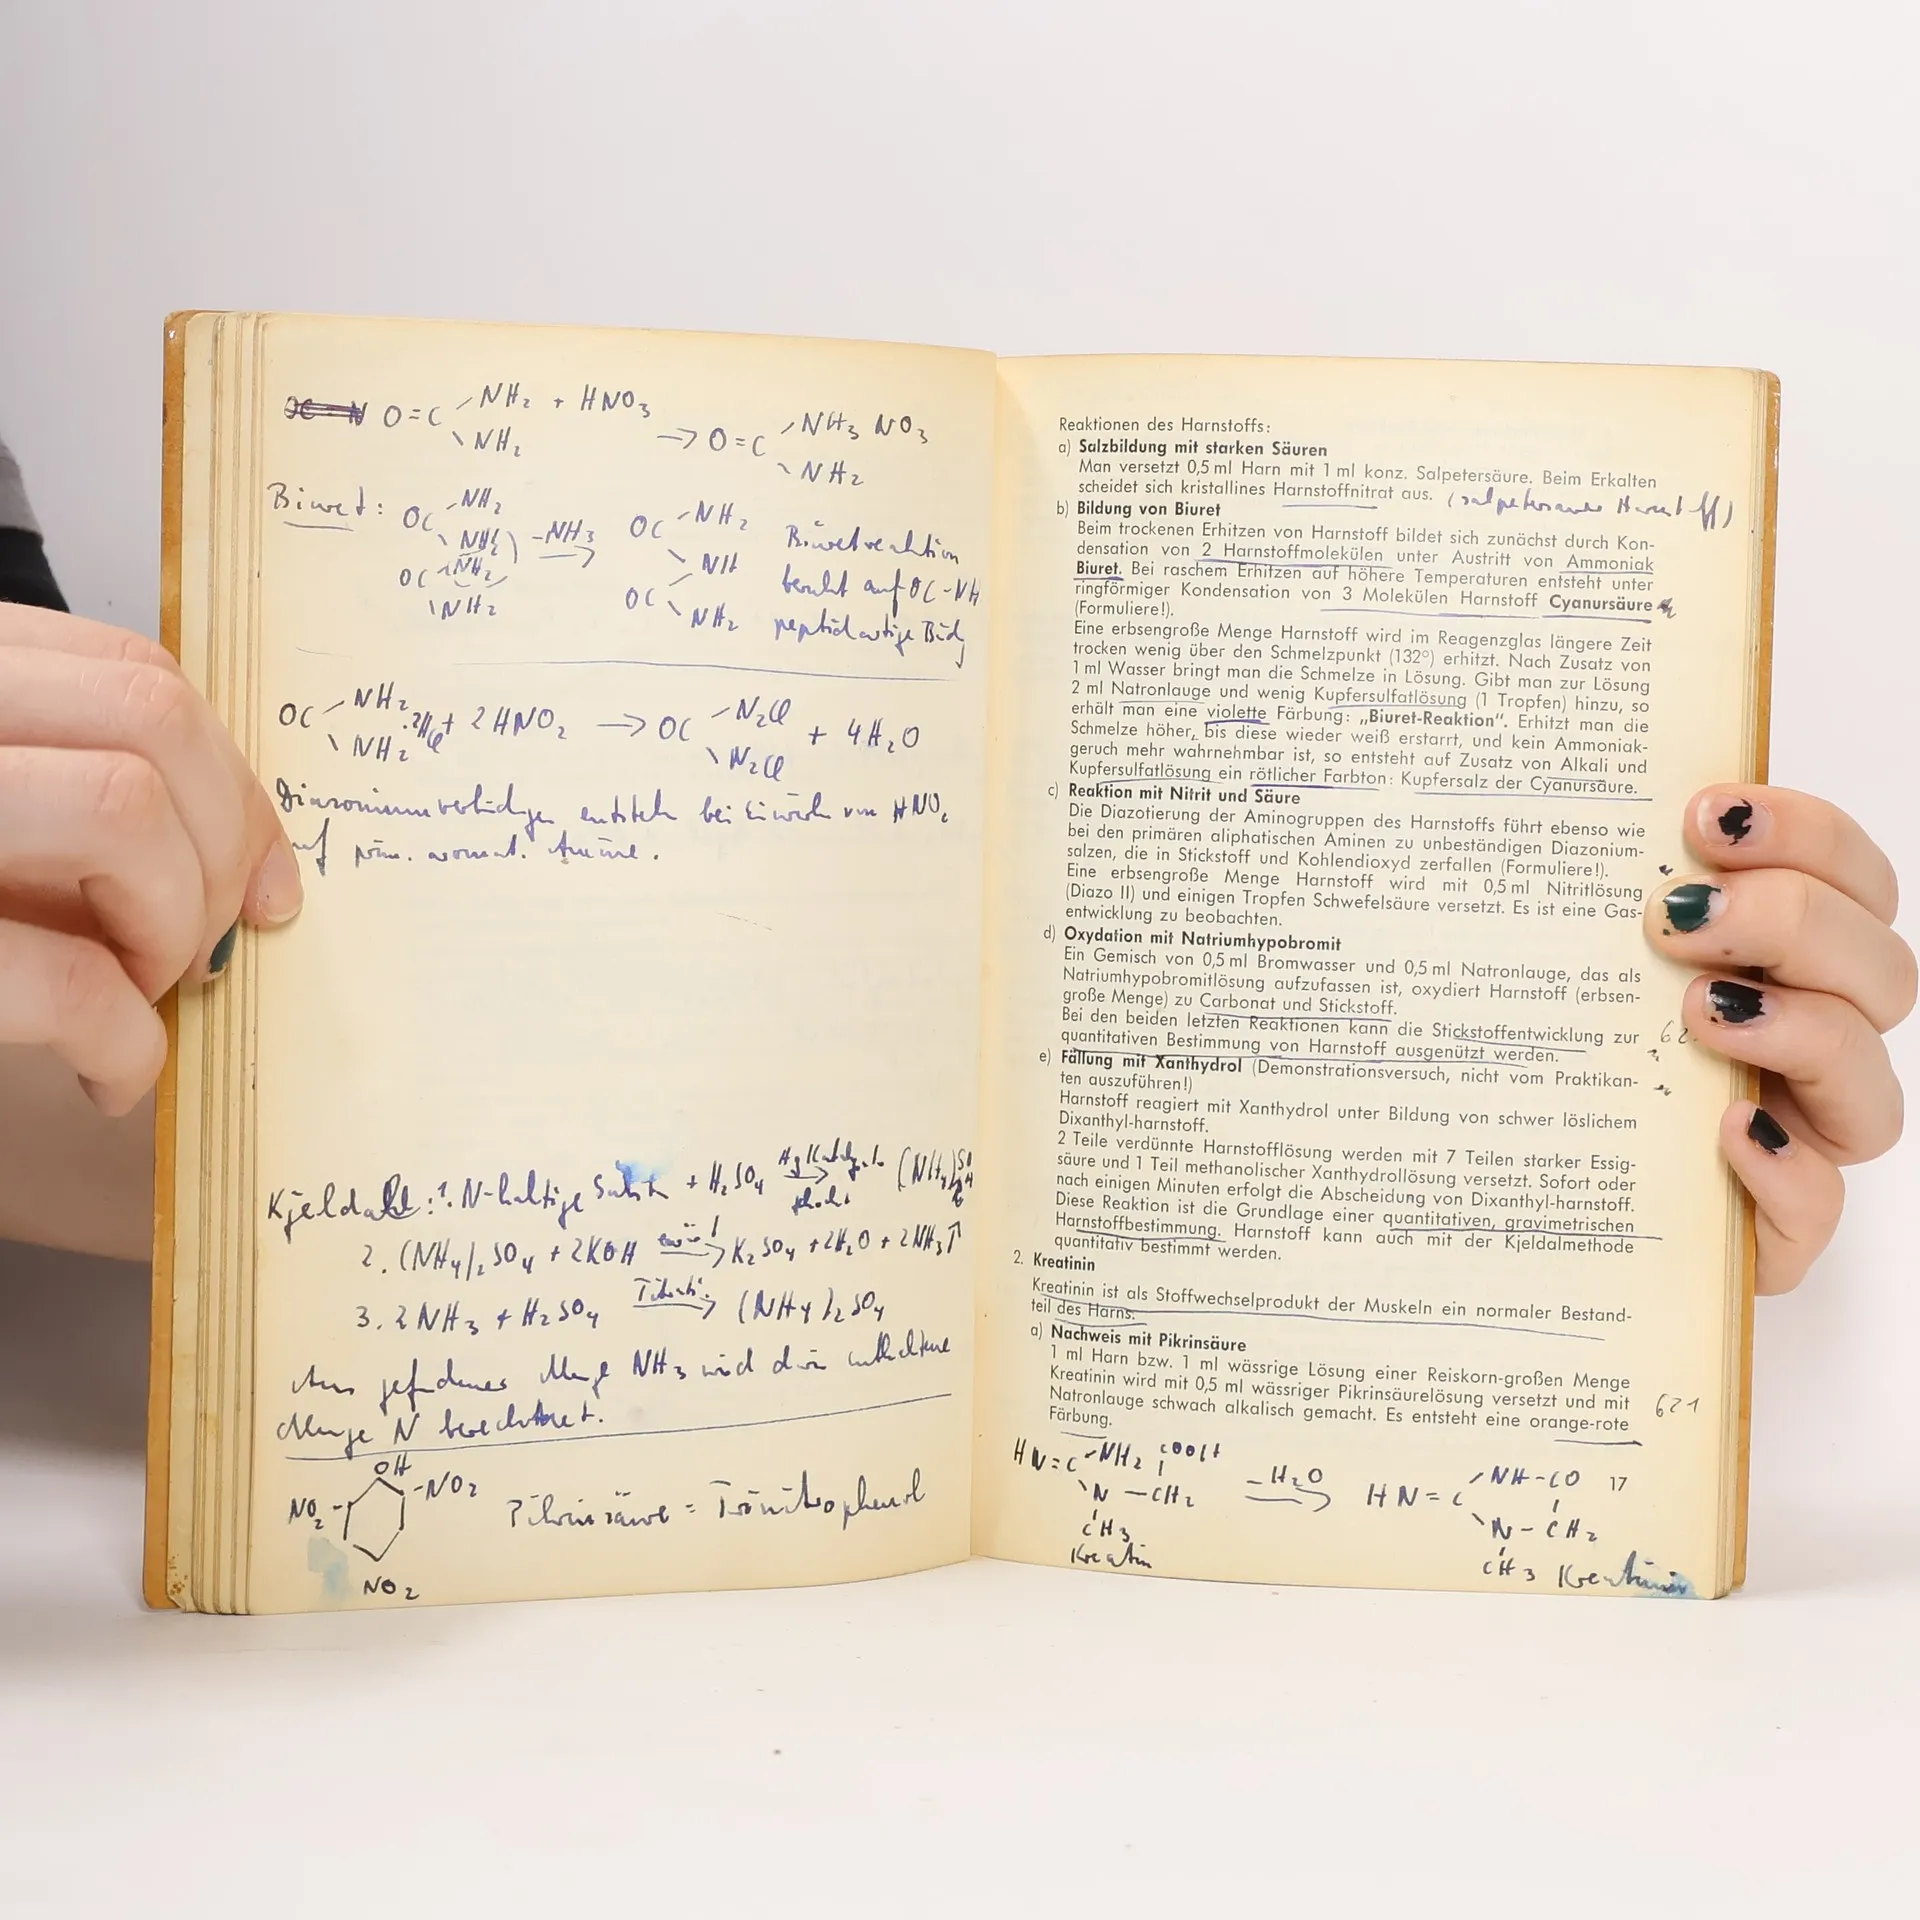 O=C NH2 + HNO3 → O=C NH3 NO3
NH2 NH2
Biuret: OC NH2 -NH3 → OC NH2 Biuretreaktion
NH2 NH beruht auf OC-NH
OC NH2 OC NH2 peptidartige
NH2
OC NH2 + 2HNO2 → OC N2Cl + 4H2O
NH2 N2Cl
Diazoniumverbindungen entstehn bei von HNO2
auf prim. aromat. Amine.
Kjeldahl: 1. N-haltige + H2SO4 → (NH4)2SO4
2. (NH4)2SO4 + 2KOH → K2SO4 + 2H2O + 2NH3↑
3. 2NH3 + H2SO4 → (NH4)2SO4
Aus gefundener Menge NH3 wird enthaltene
Menge N berechnet.
OH
NO2 NO2 Pikrinsäure = Trinitrophenol
NO2
Reaktionen des Harnstoffs:
a) Salzbildung mit starken Säuren
Man versetzt 0,5 ml Harn mit 1 ml konz. Salpetersäure. Beim Erkalten
scheidet sich kristallines Harnstoffnitrat aus. (salpetersaurer Harnstoff)
b) Bildung von Biuret
Beim trockenen Erhitzen von Harnstoff bildet sich zunächst durch Kon-
densation von 2 Harnstoffmolekülen unter Austritt von Ammoniak
Biuret. Bei raschem Erhitzen auf höhere Temperaturen entsteht unter
ringförmiger Kondensation von 3 Molekülen Harnstoff Cyanursäure
(Formuliere!).
Eine erbsengroße Menge Harnstoff wird im Reagenzglas längere Zeit
trocken wenig über den Schmelzpunkt (132°) erhitzt. Nach Zusatz von
1 ml Wasser bringt man die Schmelze in Lösung. Gibt man zur Lösung
2 ml Natronlauge und wenig Kupfersulfatlösung (1 Tropfen) hinzu, so
erhält man eine violette Färbung: „Biuret-Reaktion“. Erhitzt man die
Schmelze höher, bis diese wieder weiß erstarrt, und kein Ammoniak-
geruch mehr wahrnehmbar ist, so entsteht auf Zusatz von Alkali und
Kupfersulfatlösung ein rötlicher Farbton: Kupfersalz der Cyanursäure.
c) Reaktion mit Nitrit und Säure
Die Diazotierung der Aminogruppen des Harnstoffs führt ebenso wie
bei den primären aliphatischen Aminen zu unbeständigen Diazonium-
salzen, die in Stickstoff und Kohlendioxyd zerfallen (Formuliere!).
Eine erbsengroße Menge Harnstoff wird mit 0,5 ml Nitritlösung
(Diazo II) und einigen Tropfen Schwefelsäure versetzt. Es ist eine Gas-
entwicklung zu beobachten.
d) Oxydation mit Natriumhypobromit
Ein Gemisch von 0,5 ml Bromwasser und 0,5 ml Natronlauge, das als
Natriumhypobromitlösung aufzufassen ist, oxydiert Harnstoff (erbsen-
große Menge) zu Carbonat und Stickstoff.
Bei den beiden letzten Reaktionen kann die Stickstoffentwicklung zur
quantitativen Bestimmung von Harnstoff ausgenützt werden.
e) Fällung mit Xanthydrol (Demonstrationsversuch, nicht vom Praktikan-
ten auszuführen!)
Harnstoff reagiert mit Xanthydrol unter Bildung von schwer löslichem
Dixanthyl-harnstoff.
2 Teile verdünnte Harnstofflösung werden mit 7 Teilen starker Essig-
säure und 1 Teil methanolischer Xanthydrollösung versetzt. Sofort oder
nach einigen Minuten erfolgt die Abscheidung von Dixanthyl-harnstoff.
Diese Reaktion ist die Grundlage einer quantitativen, gravimetrischen
Harnstoffbestimmung. Harnstoff kann auch mit der Kjeldalmethode
quantitativ bestimmt werden.
2. Kreatinin
Kreatinin ist als Stoffwechselprodukt der Muskeln ein normaler Bestand-
teil des Harns.
a) Nachweis mit Pikrinsäure
1 ml Harn bzw. 1 ml wässrige Lösung einer Reiskorn-großen Menge
Kreatinin wird mit 0,5 ml wässriger Pikrinsäurelösung versetzt und mit
Natronlauge schwach alkalisch gemacht. Es entsteht eine orange-rote 621
Färbung.
HN=C NH2 COOH -H2O → HN=C NH-CO 17
N-CH2 N-CH2
CH3 CH3
Kreatin Kreatinin